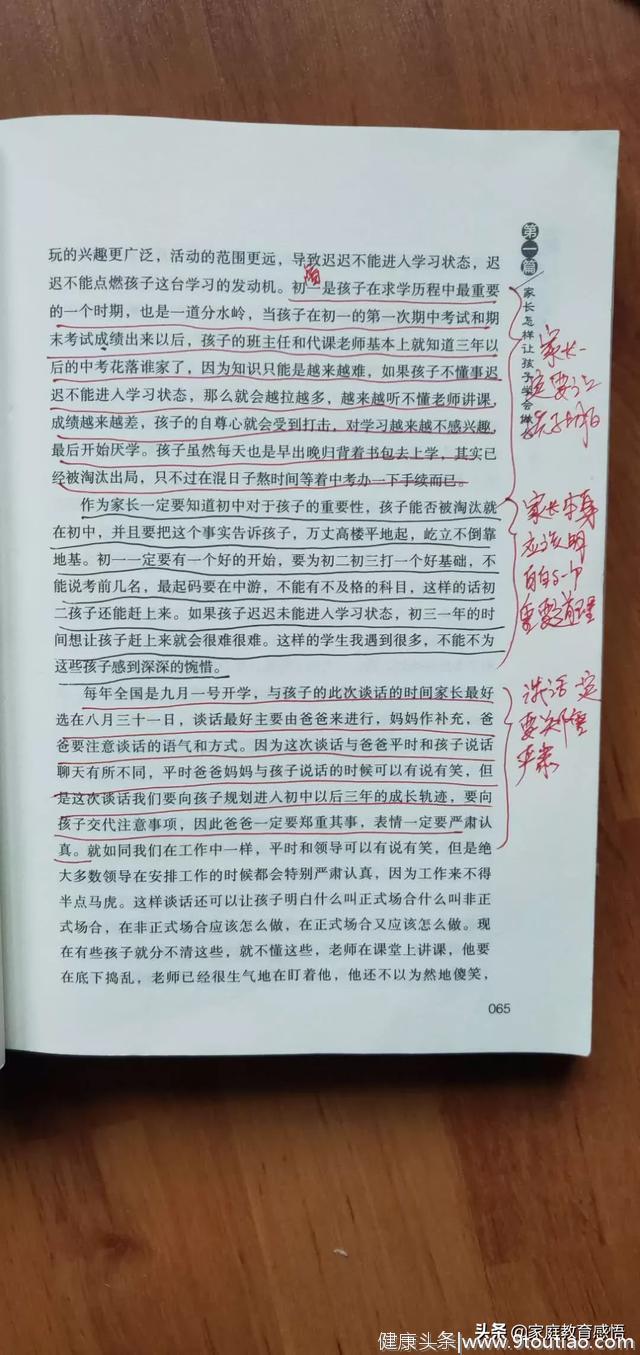 玩的兴趣更广泛，活动的范围更远，导致迟迟不能进入学习状态，迟
迟不能点燃孩子这台学习的发动机。初一是孩子在求学历程中最重要
的一个时期，也是一道分水岭，当孩子在初一的第一次期中考试和期
末考试成绩出来以后，孩子的班主任和代课老师基本上就知道三年以
后的中考花落谁家了，因为知识只能是越来越难，如果孩子不懂事迟
迟不能进入学习状态，那么就会越拉越多，越来越听不懂老师讲课，
成绩越来越差，孩子的自尊心就会受到打击，对学习越来越不感兴趣，
最后开始厌学。孩子虽然每天也是早出晚归背着书包去上学，其实已
经被淘汰出局，只不过在混日子熬时间等着中考办一下手续而已。
作为家长一定要知道初中对于孩子的重要性，孩子能否被淘汰就
在初中，并且要把这个事实告诉孩子，万丈高楼平地起，屹立不倒靠
地基。初一一定要有一个好的开始，要为初二初三打一个好基础，不
能说考前几名，最起码要在中游，不能有不及格的科目，这样的话初
二孩子还能赶上来。如果孩子迟迟未能进入学习状态，初三一年的时
间想让孩子赶上来就会很难很难。这样的学生我遇到很多，不能不为
这些孩子感到深深的惋惜。
每年全国是九月一号开学，与孩子的此次谈话的时间家长最好
选在八月三十一日，谈话最好主要由爸爸来进行，妈妈作补充，爸
爸要注意谈话的语气和方式。因为这次谈话与爸爸平时和孩子说话
聊天有所不同，平时爸爸妈妈与孩子说话的时候可以有说有笑，但
是这次谈话我们要向孩子规划进入初中以后三年的成长轨迹，要向
孩子交代注意事项，因此爸爸一定要郑重其事，表情一定要严肃认
真。就如同我们在工作中一样，平时和领导可以有说有笑，但是绝
大多数领导在安排工作的时候都会特别严肃认真，因为工作来不得
半点马虎。这样谈话还可以让孩子明白什么叫正式场合什么叫非正
式场合，在非正式场合应该怎么做，在正式场合又应该怎么做。现
在有些孩子就分不清这些，就不懂这些，老师在课堂上讲课，他要
在底下捣乱，老师已经很生气地在盯着他，他还不以为然地傻笑，
065
第一篇
家长怎样让孩子学会做
家长一
定要让
孩子明白
家长本身
应该明
白这一个
重要道理
谈话一定
要严肃
头条 @家庭教育感悟
健康头条|www.9toutiao.com